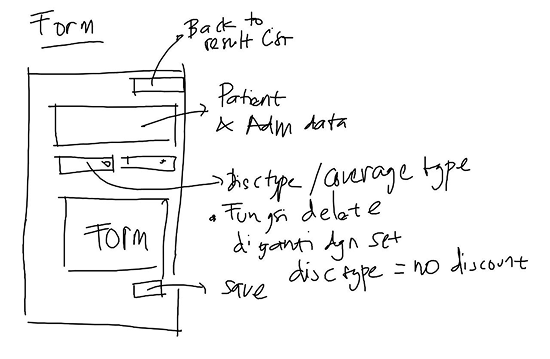 Form
Back to
result list
Patient
& Adm data
Disctype / average type
• Fungsi delete
diganti dgn set
disctype = no discount
Form
save